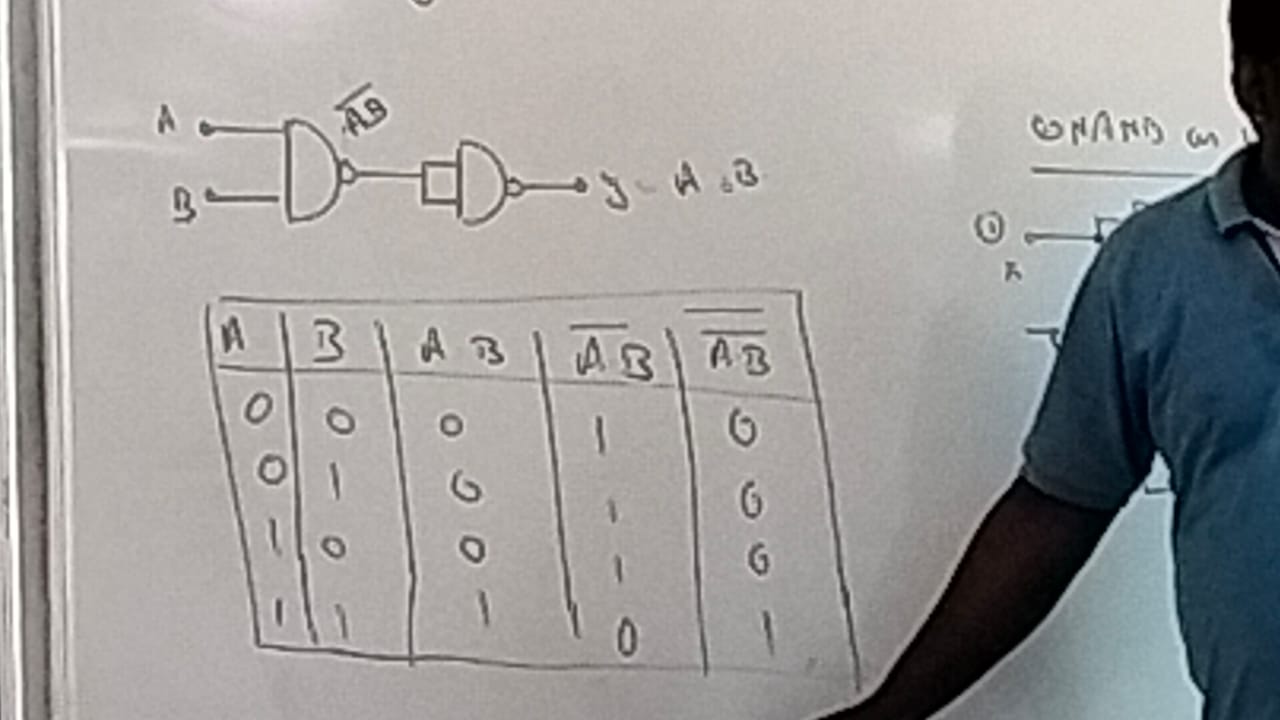 A̅B̅
A
B
y = A . B
A B A B A̅ B̅ A̿B̿
0 0 0 1 0
0 1 0 1 0
1 0 0 1 0
1 1 1 0 1
NAND as
①
A